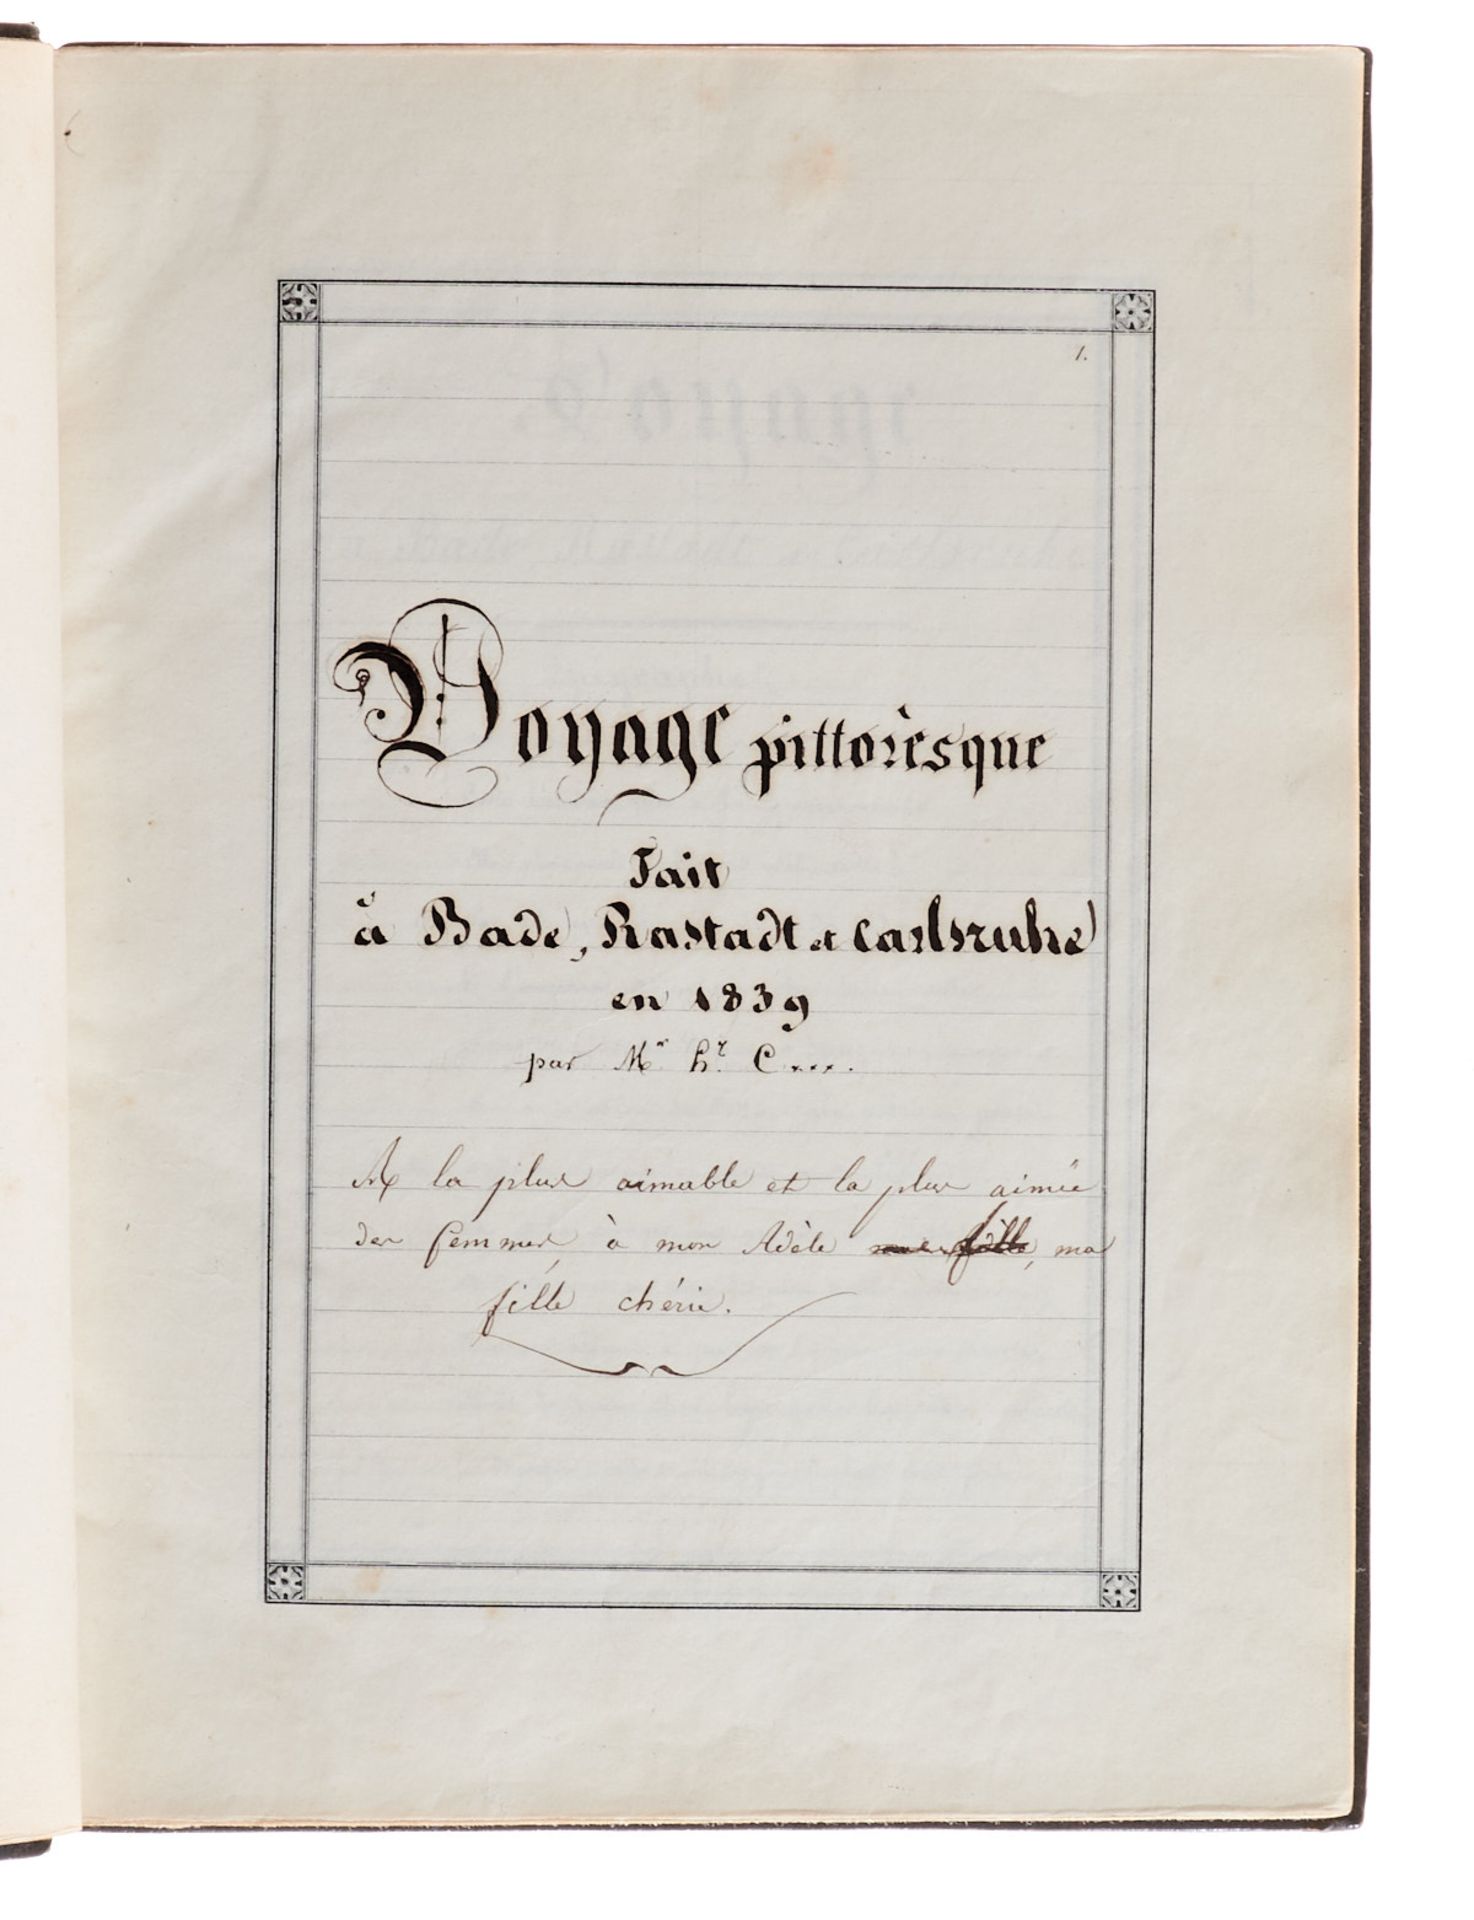 1.
Voyage pittorèsque
Fait
à Bade, Rastadt et Carlsruhe
en 1839
par Mr hr. C....
A la plus aimable et la plus aimée
des femmes, à mon Adèle fille, ma
fille chérie.